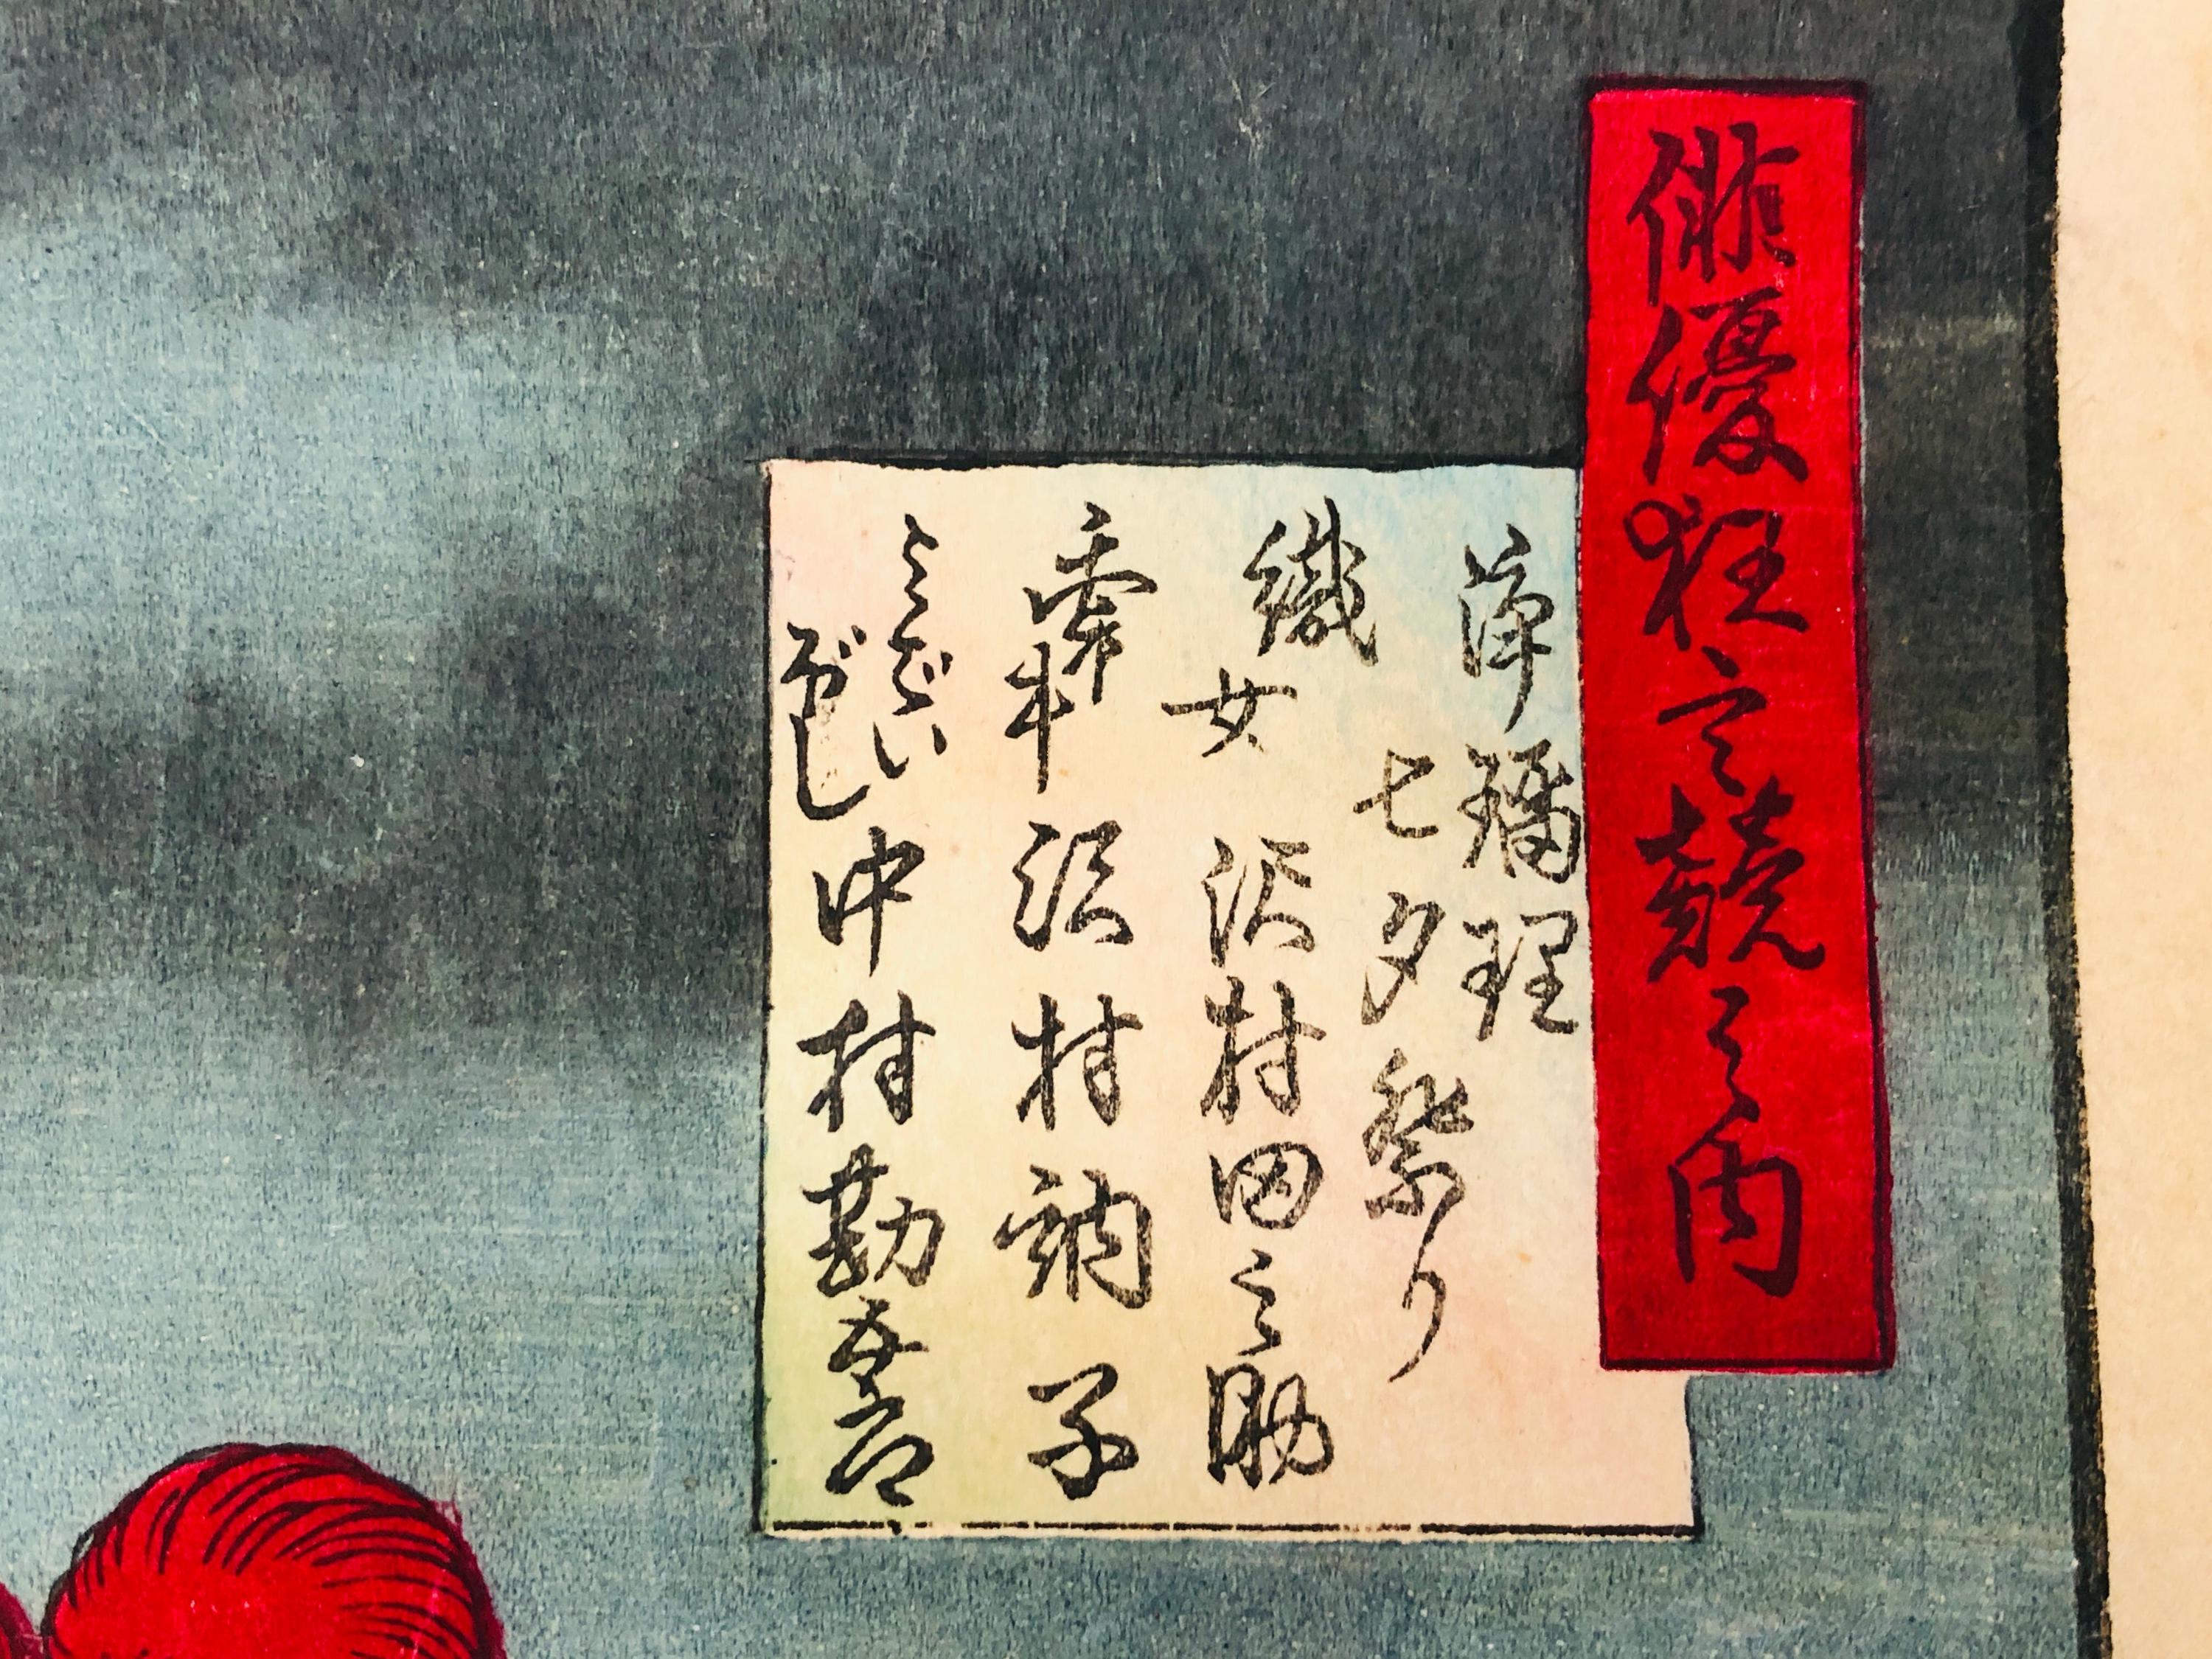 俳優狂言競之内
浄瑠理
七夕祭り
織女 沢村田之助
牽牛 沢村訥子
よばい
ぼし 中村勘五郎